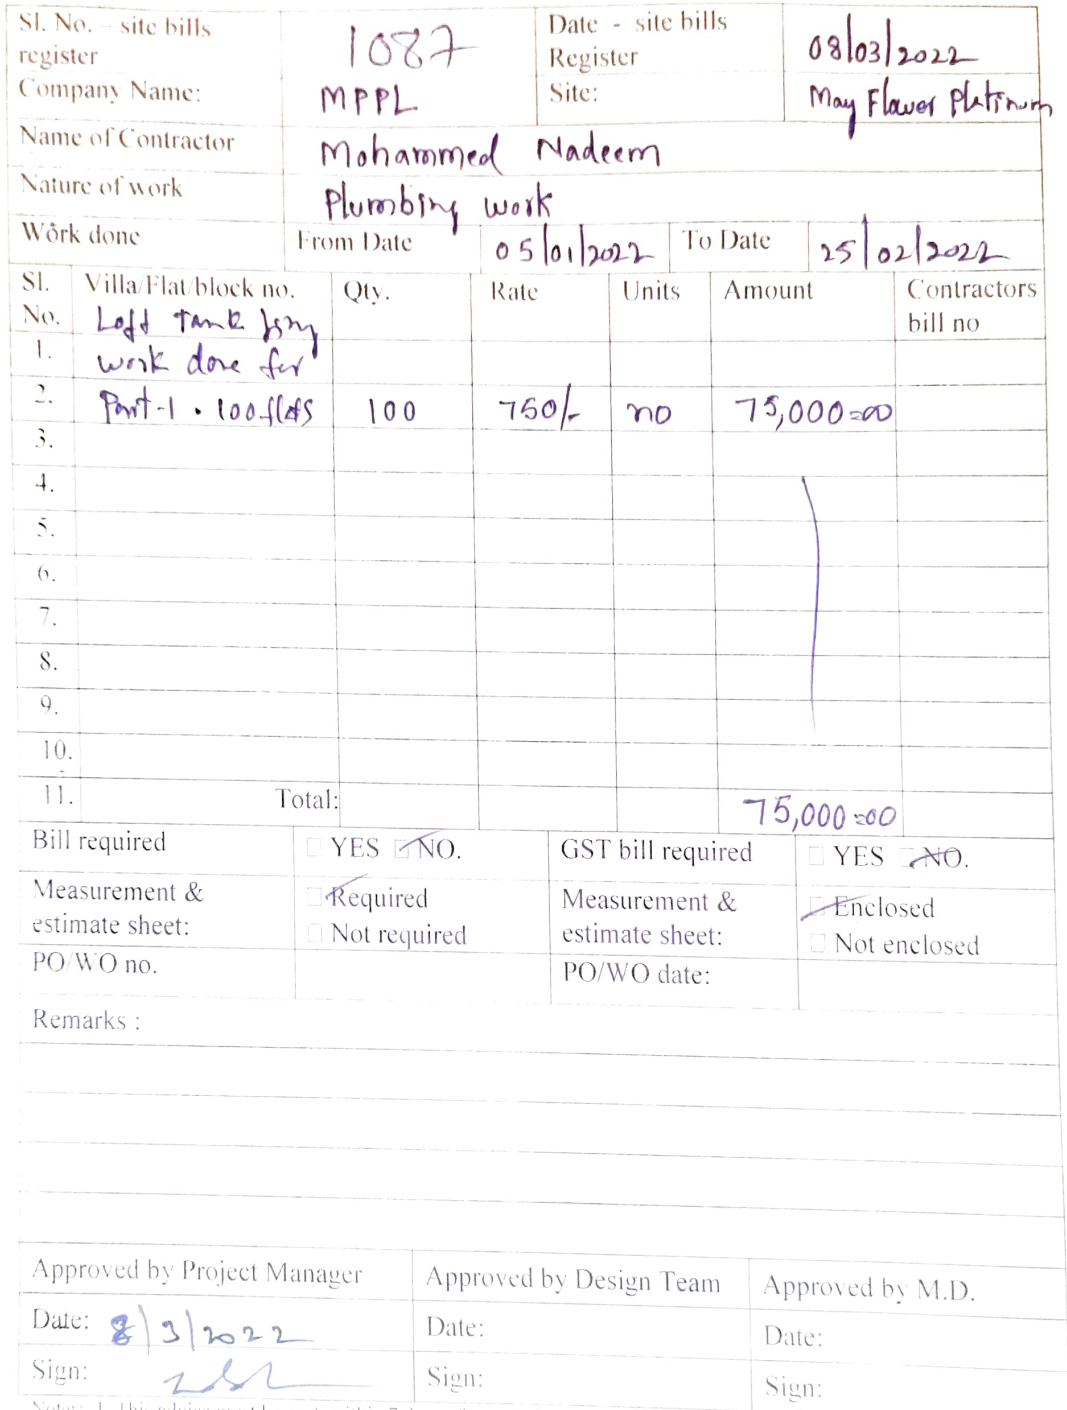 Sl. No. – site bills register 1087 Date - site bills Register 08/03/2022
Company Name: MPPL Site: May Flower Platinum
Name of Contractor Mohammed Nadeem
Nature of work Plumbing work
Work done From Date 05/01/2022 To Date 25/02/2022
Sl. No. Villa/Flat/block no. Qty. Rate Units Amount Contractors bill no
Loft Tank
1. work done for
2. Part-1 . 100 flats 100 750/- no 75,000=00
3.
4.
5.
6.
7.
8.
9.
10.
11. Total: 75,000=00
Bill required YES NO. GST bill required YES NO.
Measurement & estimate sheet: Required Not required Measurement & estimate sheet: Enclosed Not enclosed
PO/WO no. PO/WO date:
Remarks :
Approved by Project Manager Approved by Design Team Approved by M.D.
Date: 8/3/2022 Date: Date:
Sign: Sign: Sign: